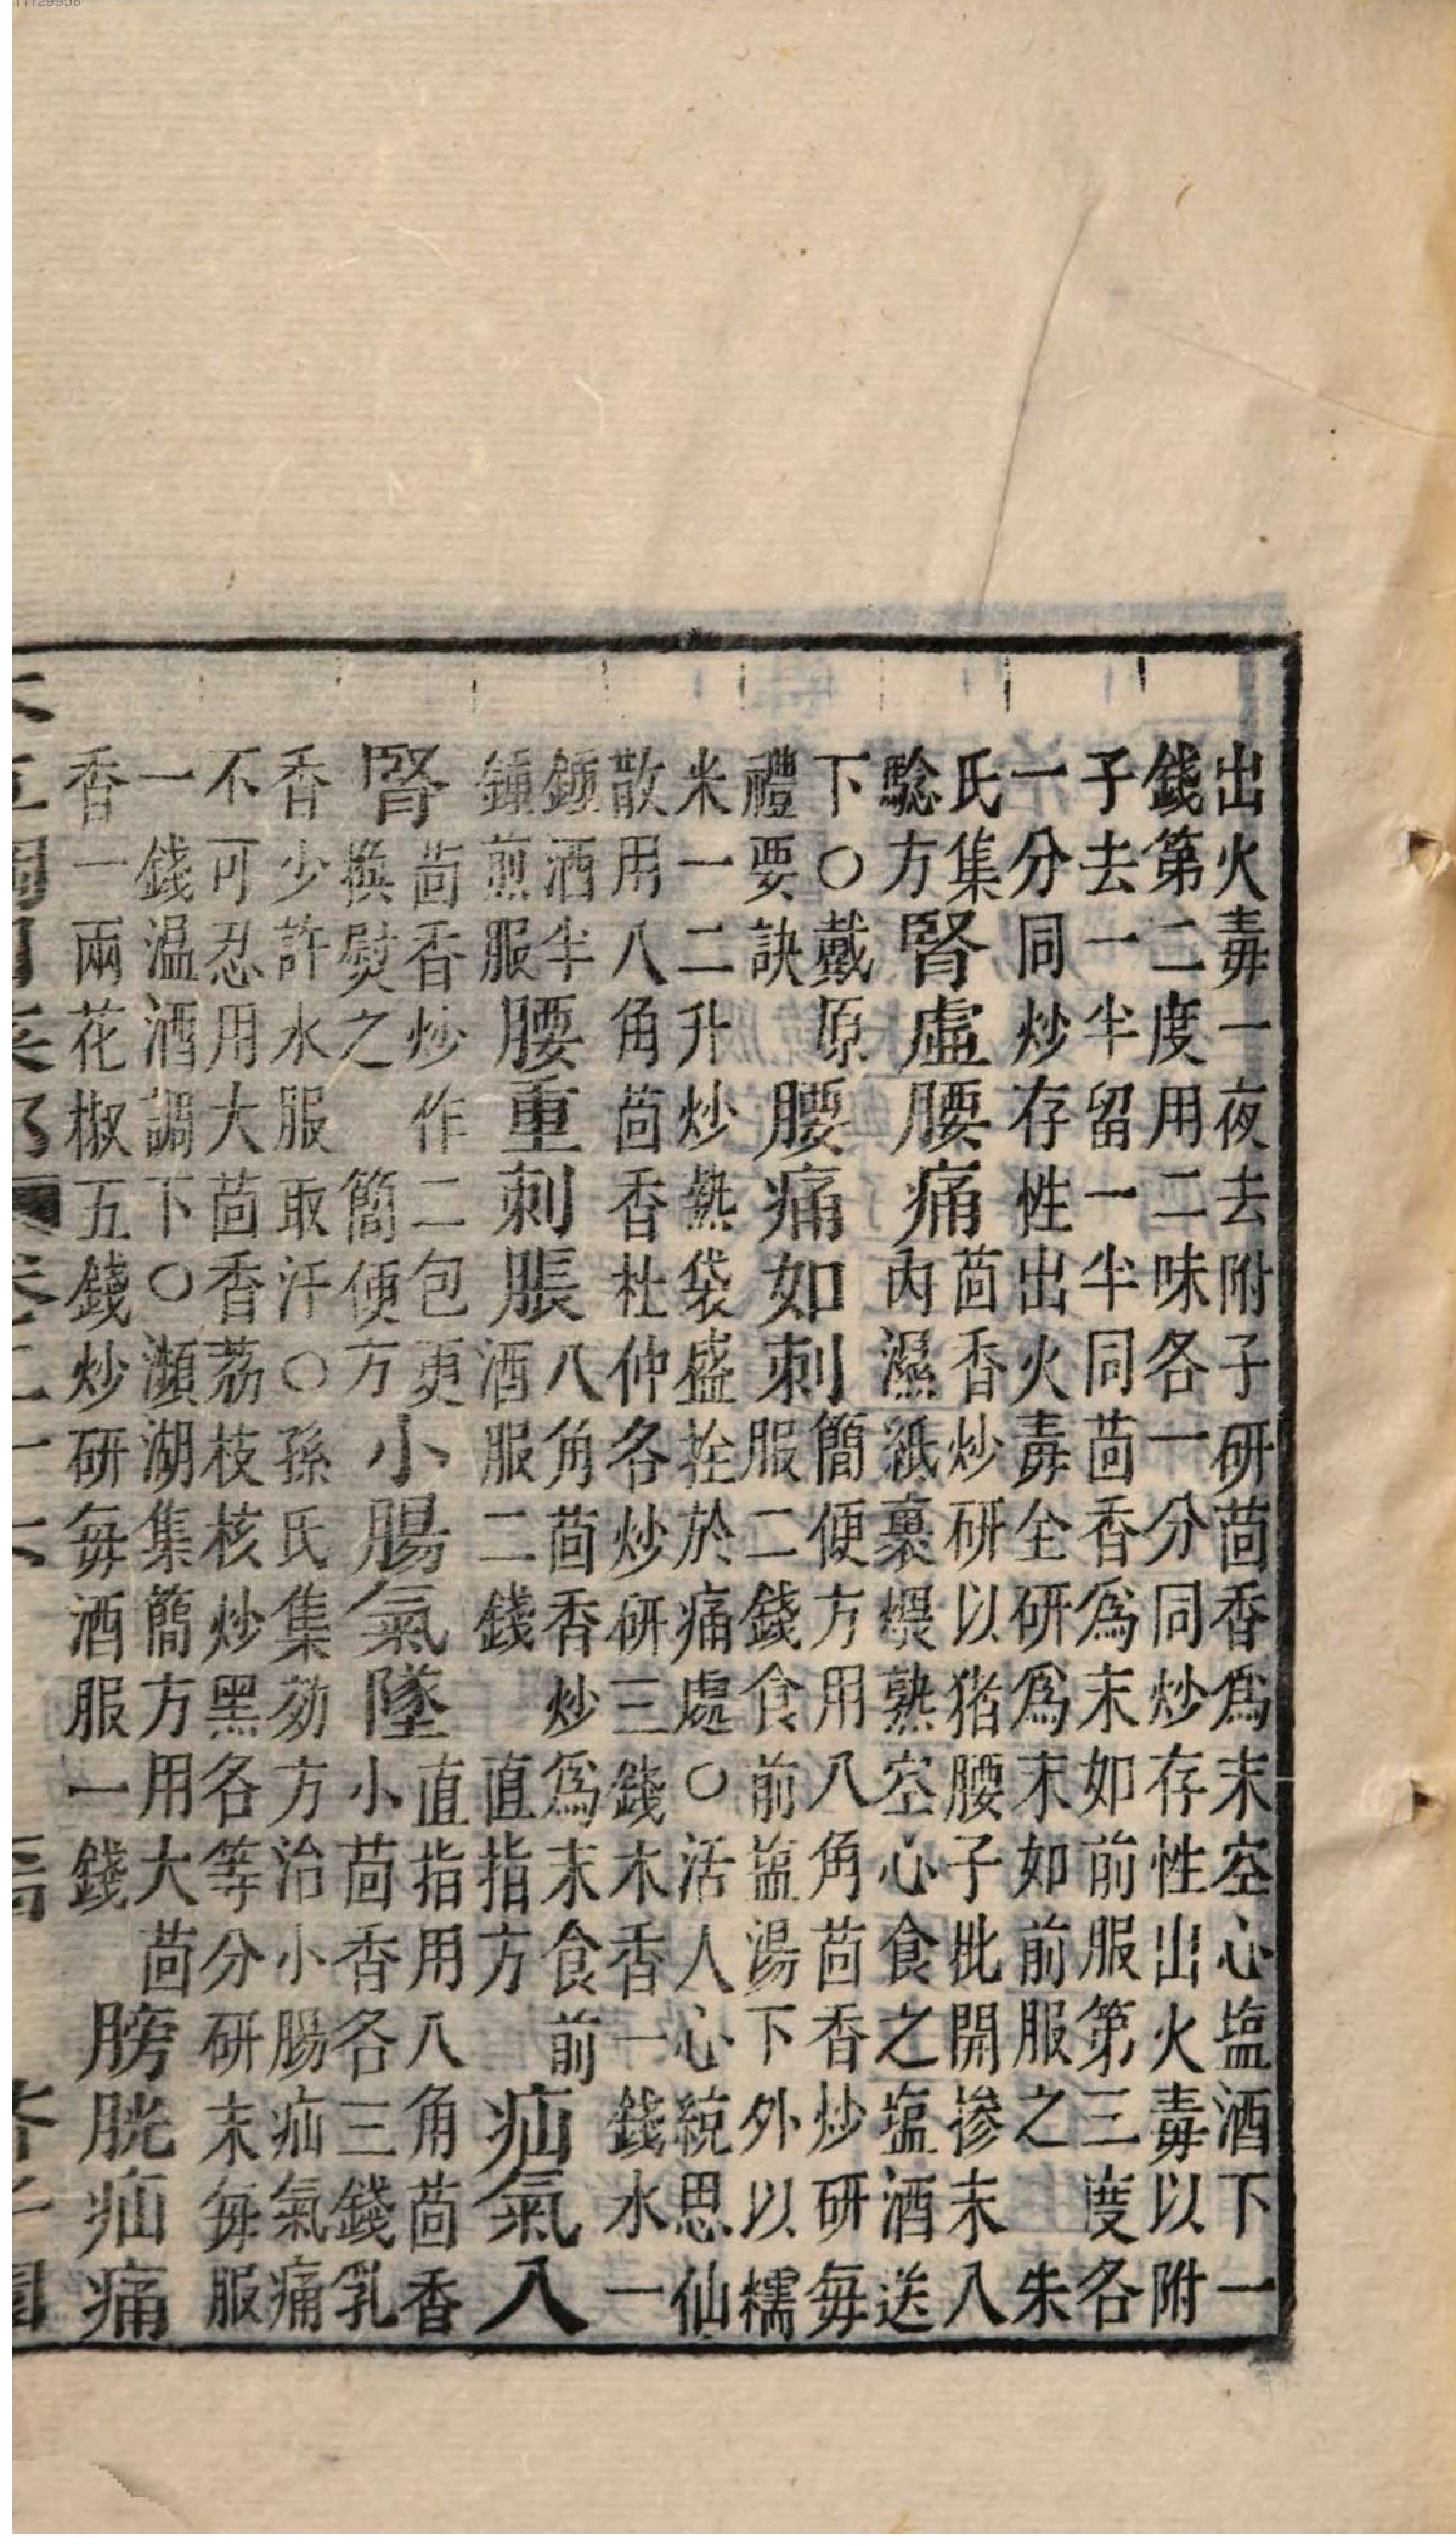 出火毒一夜去附子研茴香爲末空心塩酒下一
錢第二度用二味各一分同炒存性出火毒以附
子去一半留一半同茴香爲末如前服第三度各
一分同炒存性出火毒全研爲末如前服之 朱
氏集
騐方
腎虛腰痛
茴香炒研以猪腰子批開掺末入
內濕紙裹煨熟空心食之塩酒送
下○戴原
禮要訣
腰痛如刺
簡便方用八角茴香炒研每
服二錢食前塩湯下外以糯
米一二升炒熱袋盛拴於痛處○活人心統思仙
散用八角茴香杜仲各炒研三錢木香一錢水一
鍾酒半
鍾煎服
腰重刺脹
八角茴香炒爲末食前
酒服二錢 直指方
疝氣入
腎
茴香炒作二包更
換熨之 簡便方
小腸氣墜
直指用八角茴香
小茴香各三錢乳
香少許水服取汗○孫氏集効方治小腸疝氣痛
不可忍用大茴香荔枝核炒黑各等分研末每服
一錢温酒調下○瀕湖集簡方用大茴
香一兩花椒五錢炒研每酒服一錢
膀胱疝痛